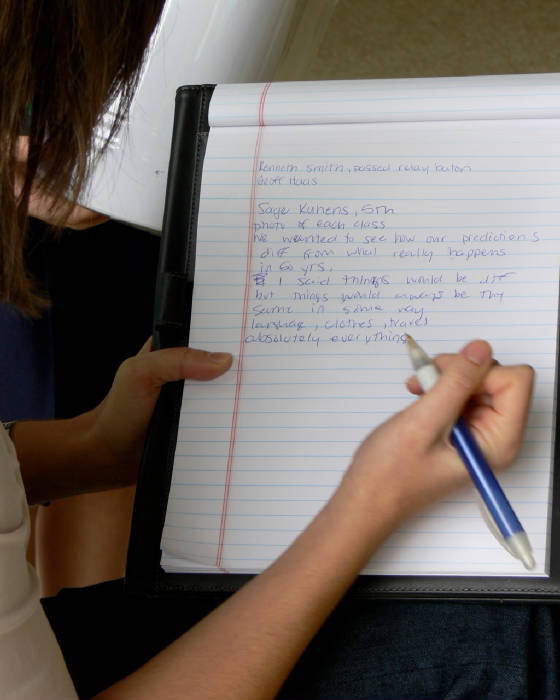 Kenneth Smith, passed relay baton
Geoff Haas
Sage Kuhens, 5th
photo of each class
We wanted to see how our predictions
diff from what really happens
in 50 yrs.
I said things would be diff
but things would always be the
same in some way
language, clothes, travel
absolutely everything